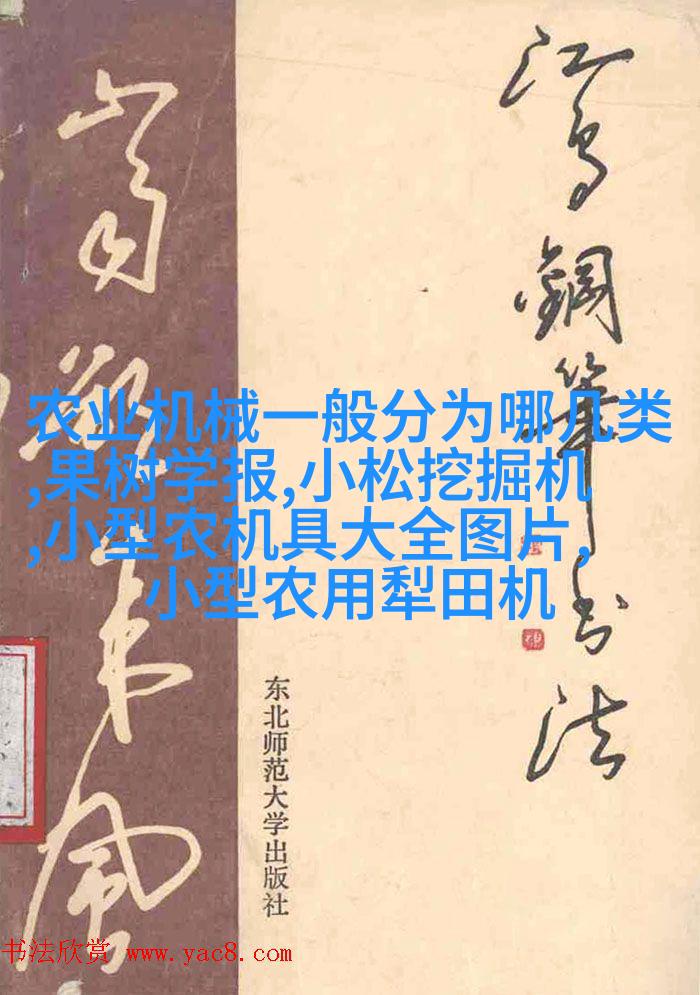 江鸟鋼筆书法
农业机械一般分为哪几类
,果树学报,小松挖掘机
,小型农机具大全图片,
小型农用犁田机
东北师范大学出版社
书法欣赏 www.yac8.com